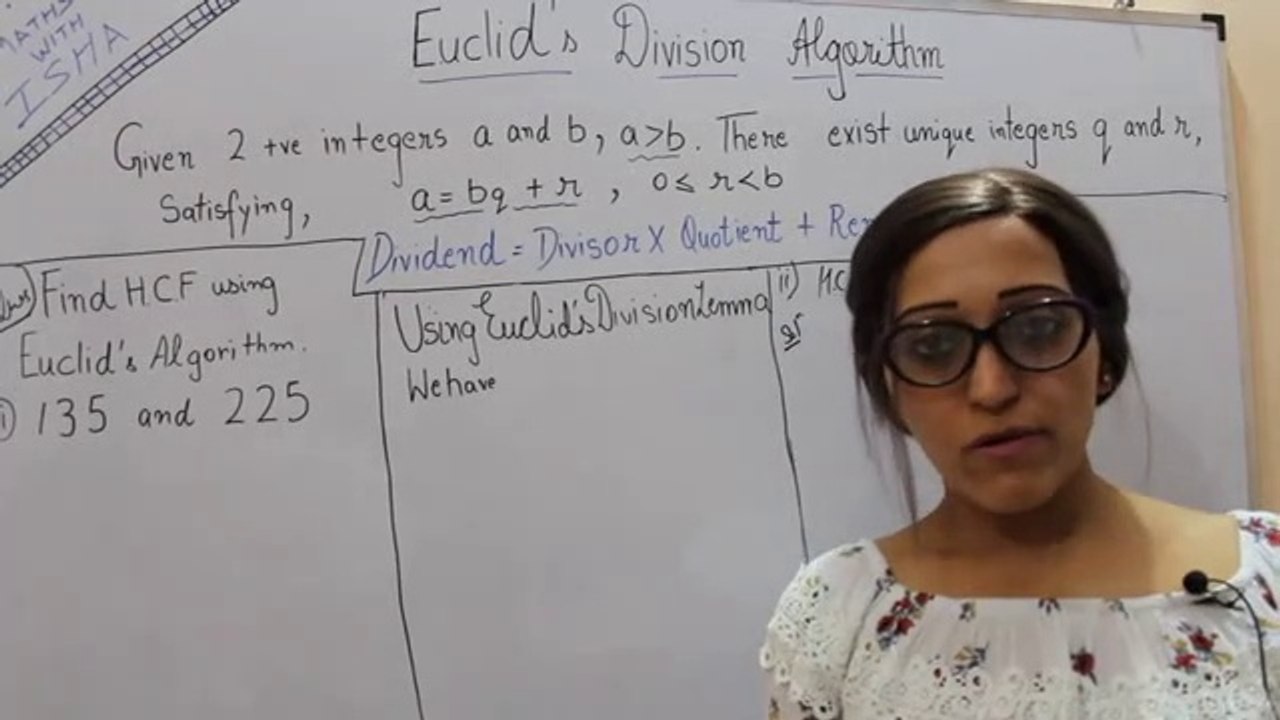 MATHS
WITH
ISHA
Euclid's Division Algorithm
Given 2 +ve integers a and b, a>b. There exist unique integers q and r,
Satisfying, a = bq + r , 0 ≤ r < b
Dividend = Divisor X Quotient +
Find HCF using
Euclid's Algorithm.
i) 135 and 225
Using Euclid's Division Lemma
We have
ii)